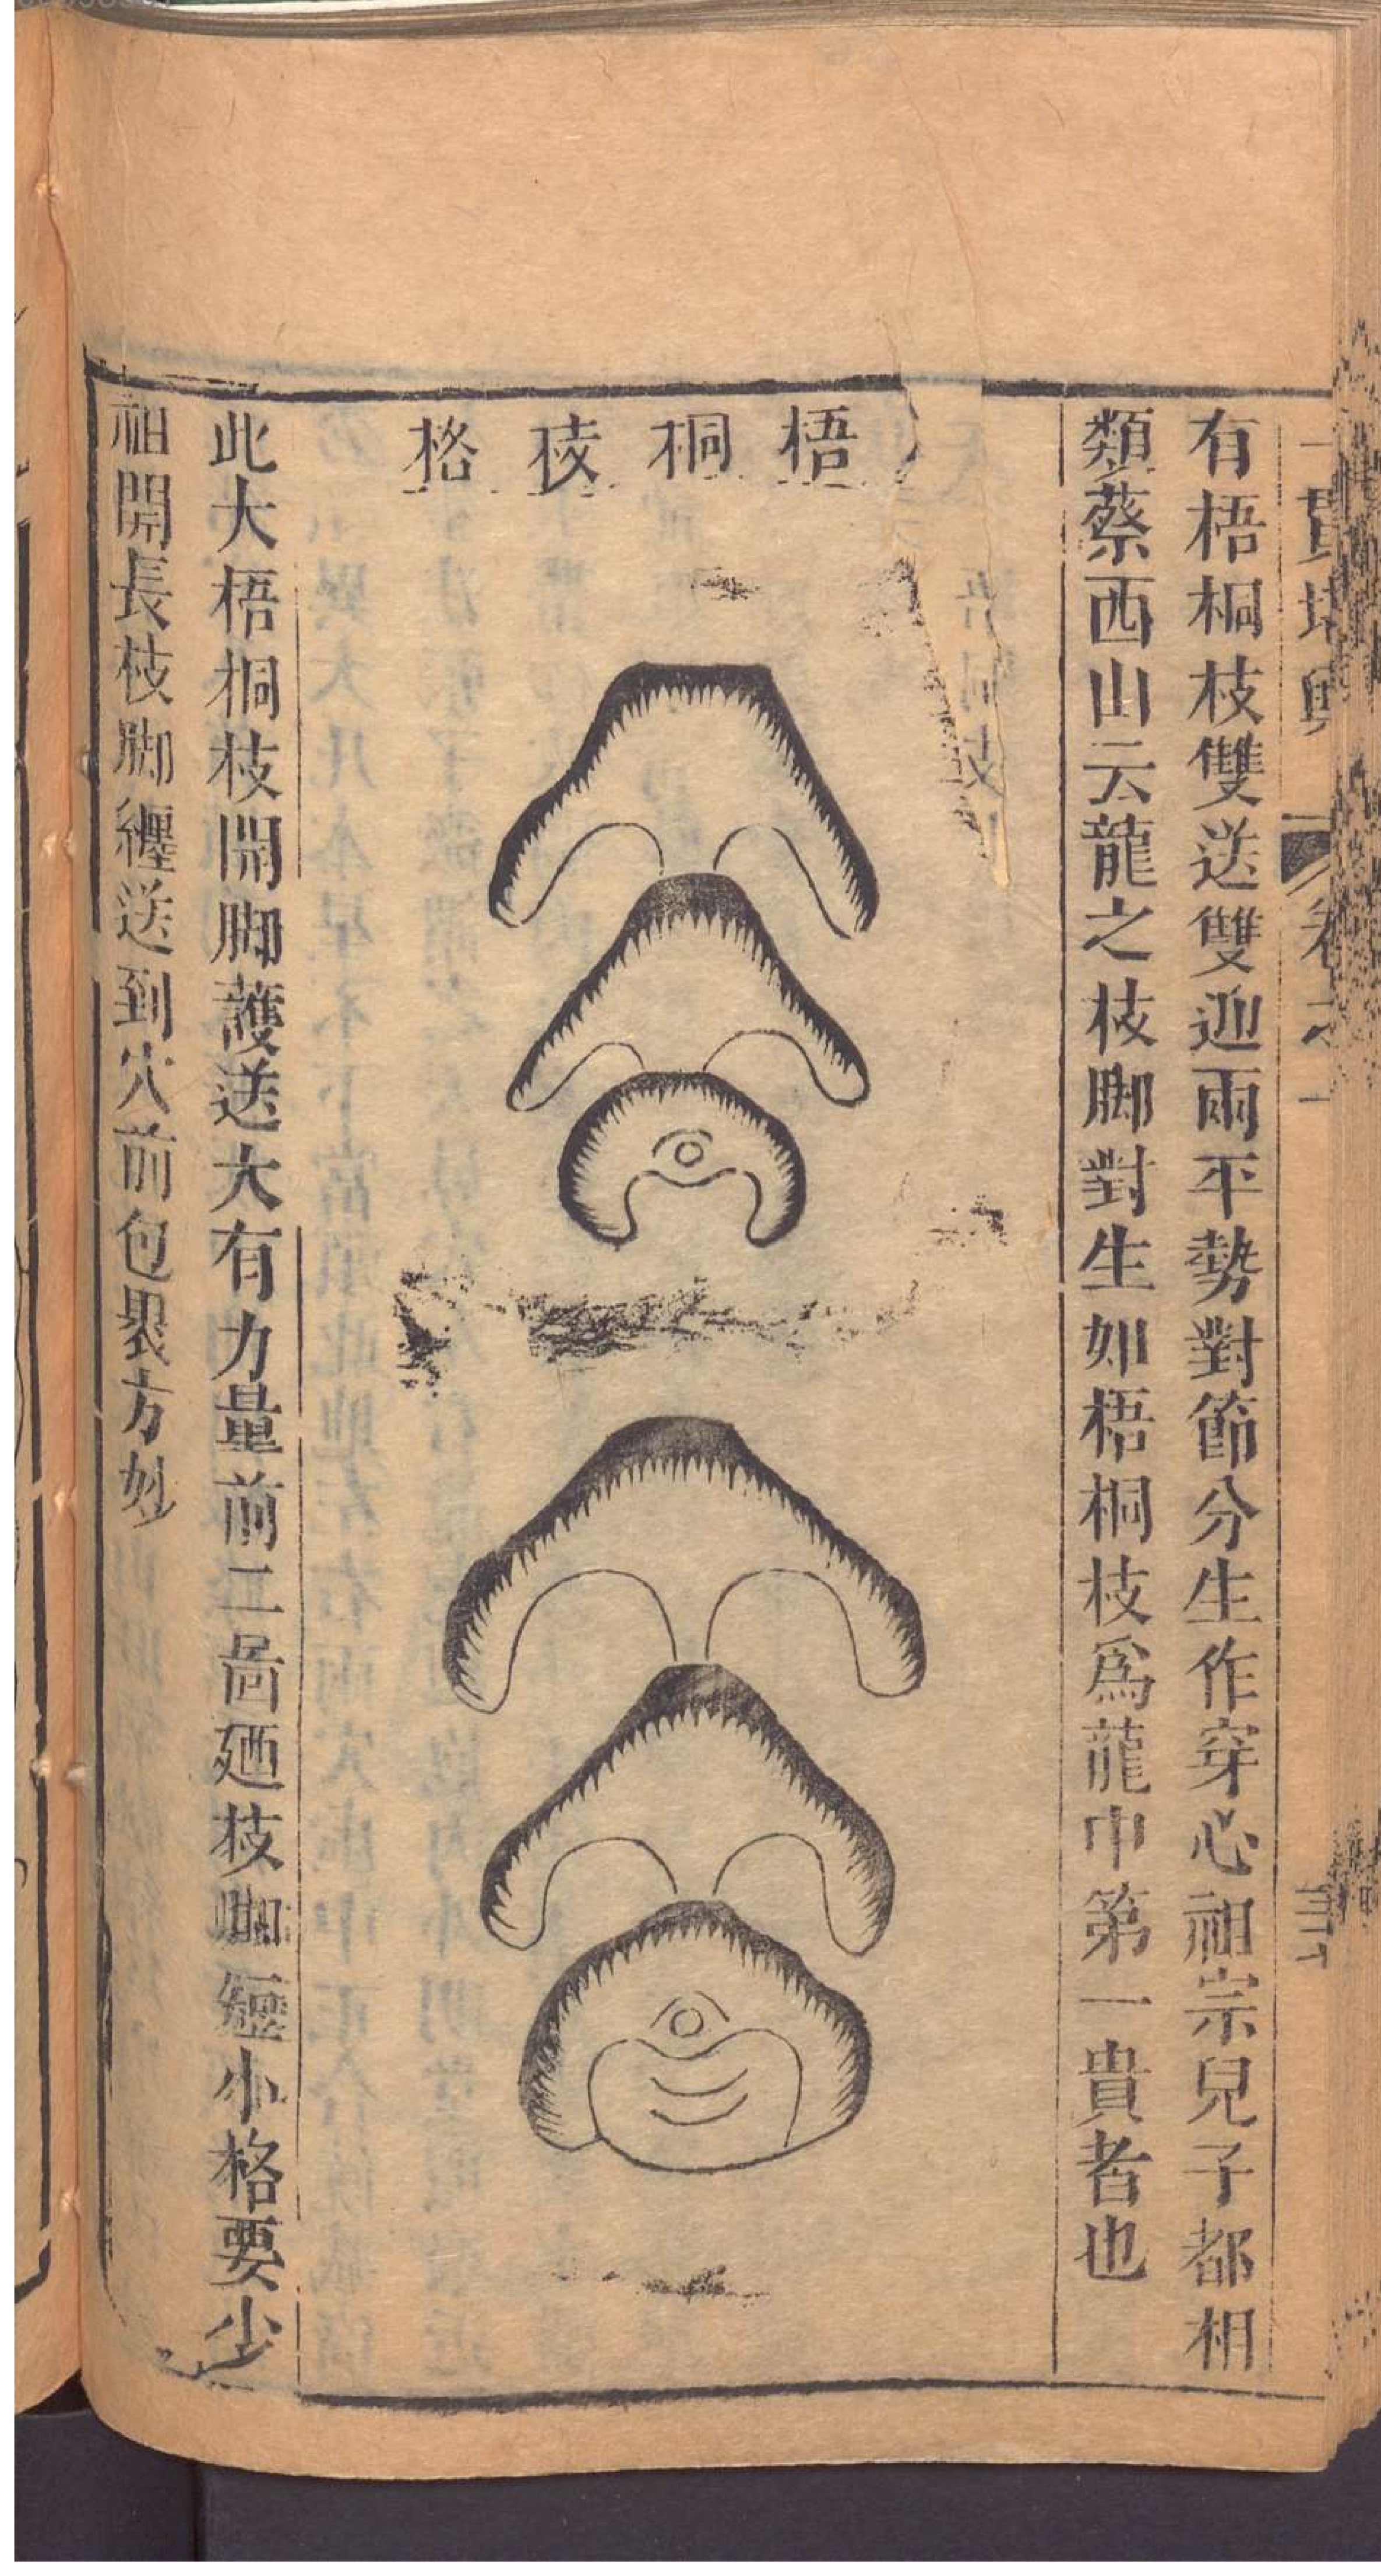 一貫堪輿
卷之一
有梧桐枝雙送雙迎兩平勢對節分生作穿心祖宗兒子都相
類蔡西山云龍之枝脚對生如梧桐枝爲龍中第一貴者也
梧桐枝格
此大梧桐枝開脚護送大有力量前二啚廼枝脚纏小格要少
祖開長枝脚纏送到穴前包裹方妙